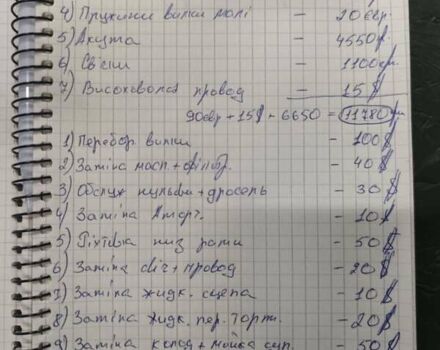 4) Пружини вилки малі - 20євр
5) Акума - 4550г
6) Свічки - 1100гр.
7) Високовольт провод - 15$
90євр + 15$ + 6650 = 11780грн
1) Перебор вилки - 100$
2) Заміна масл. + фільтр. - 40$
3) Обслуж кульви + дросель - 30$
4) Заміна Аморт. - 10$
5) Ріхтовка низ рами - 50$
6) Заміна свіч + провод - 20$
7) Заміна жидк. сцепл - 10$
8) Заміна жидк. пер. Торм. - 20$
9) Заміна колод + мойка суп. - 50$